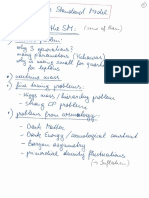 Standard Model
the SM: (some of them)
why 3 generations?
many parameters (Yukawas)
why is mixing small for quarks
for leptons
• neutrino masses
• fine tuning problems
- Higgs mass / hierarchy problem
- strong CP problem
• problems from cosmology:
- Dark Matter
- Dark Energy / cosmological constant
- baryon asymmetry
- primordial density fluctuations
(→ Inflation)